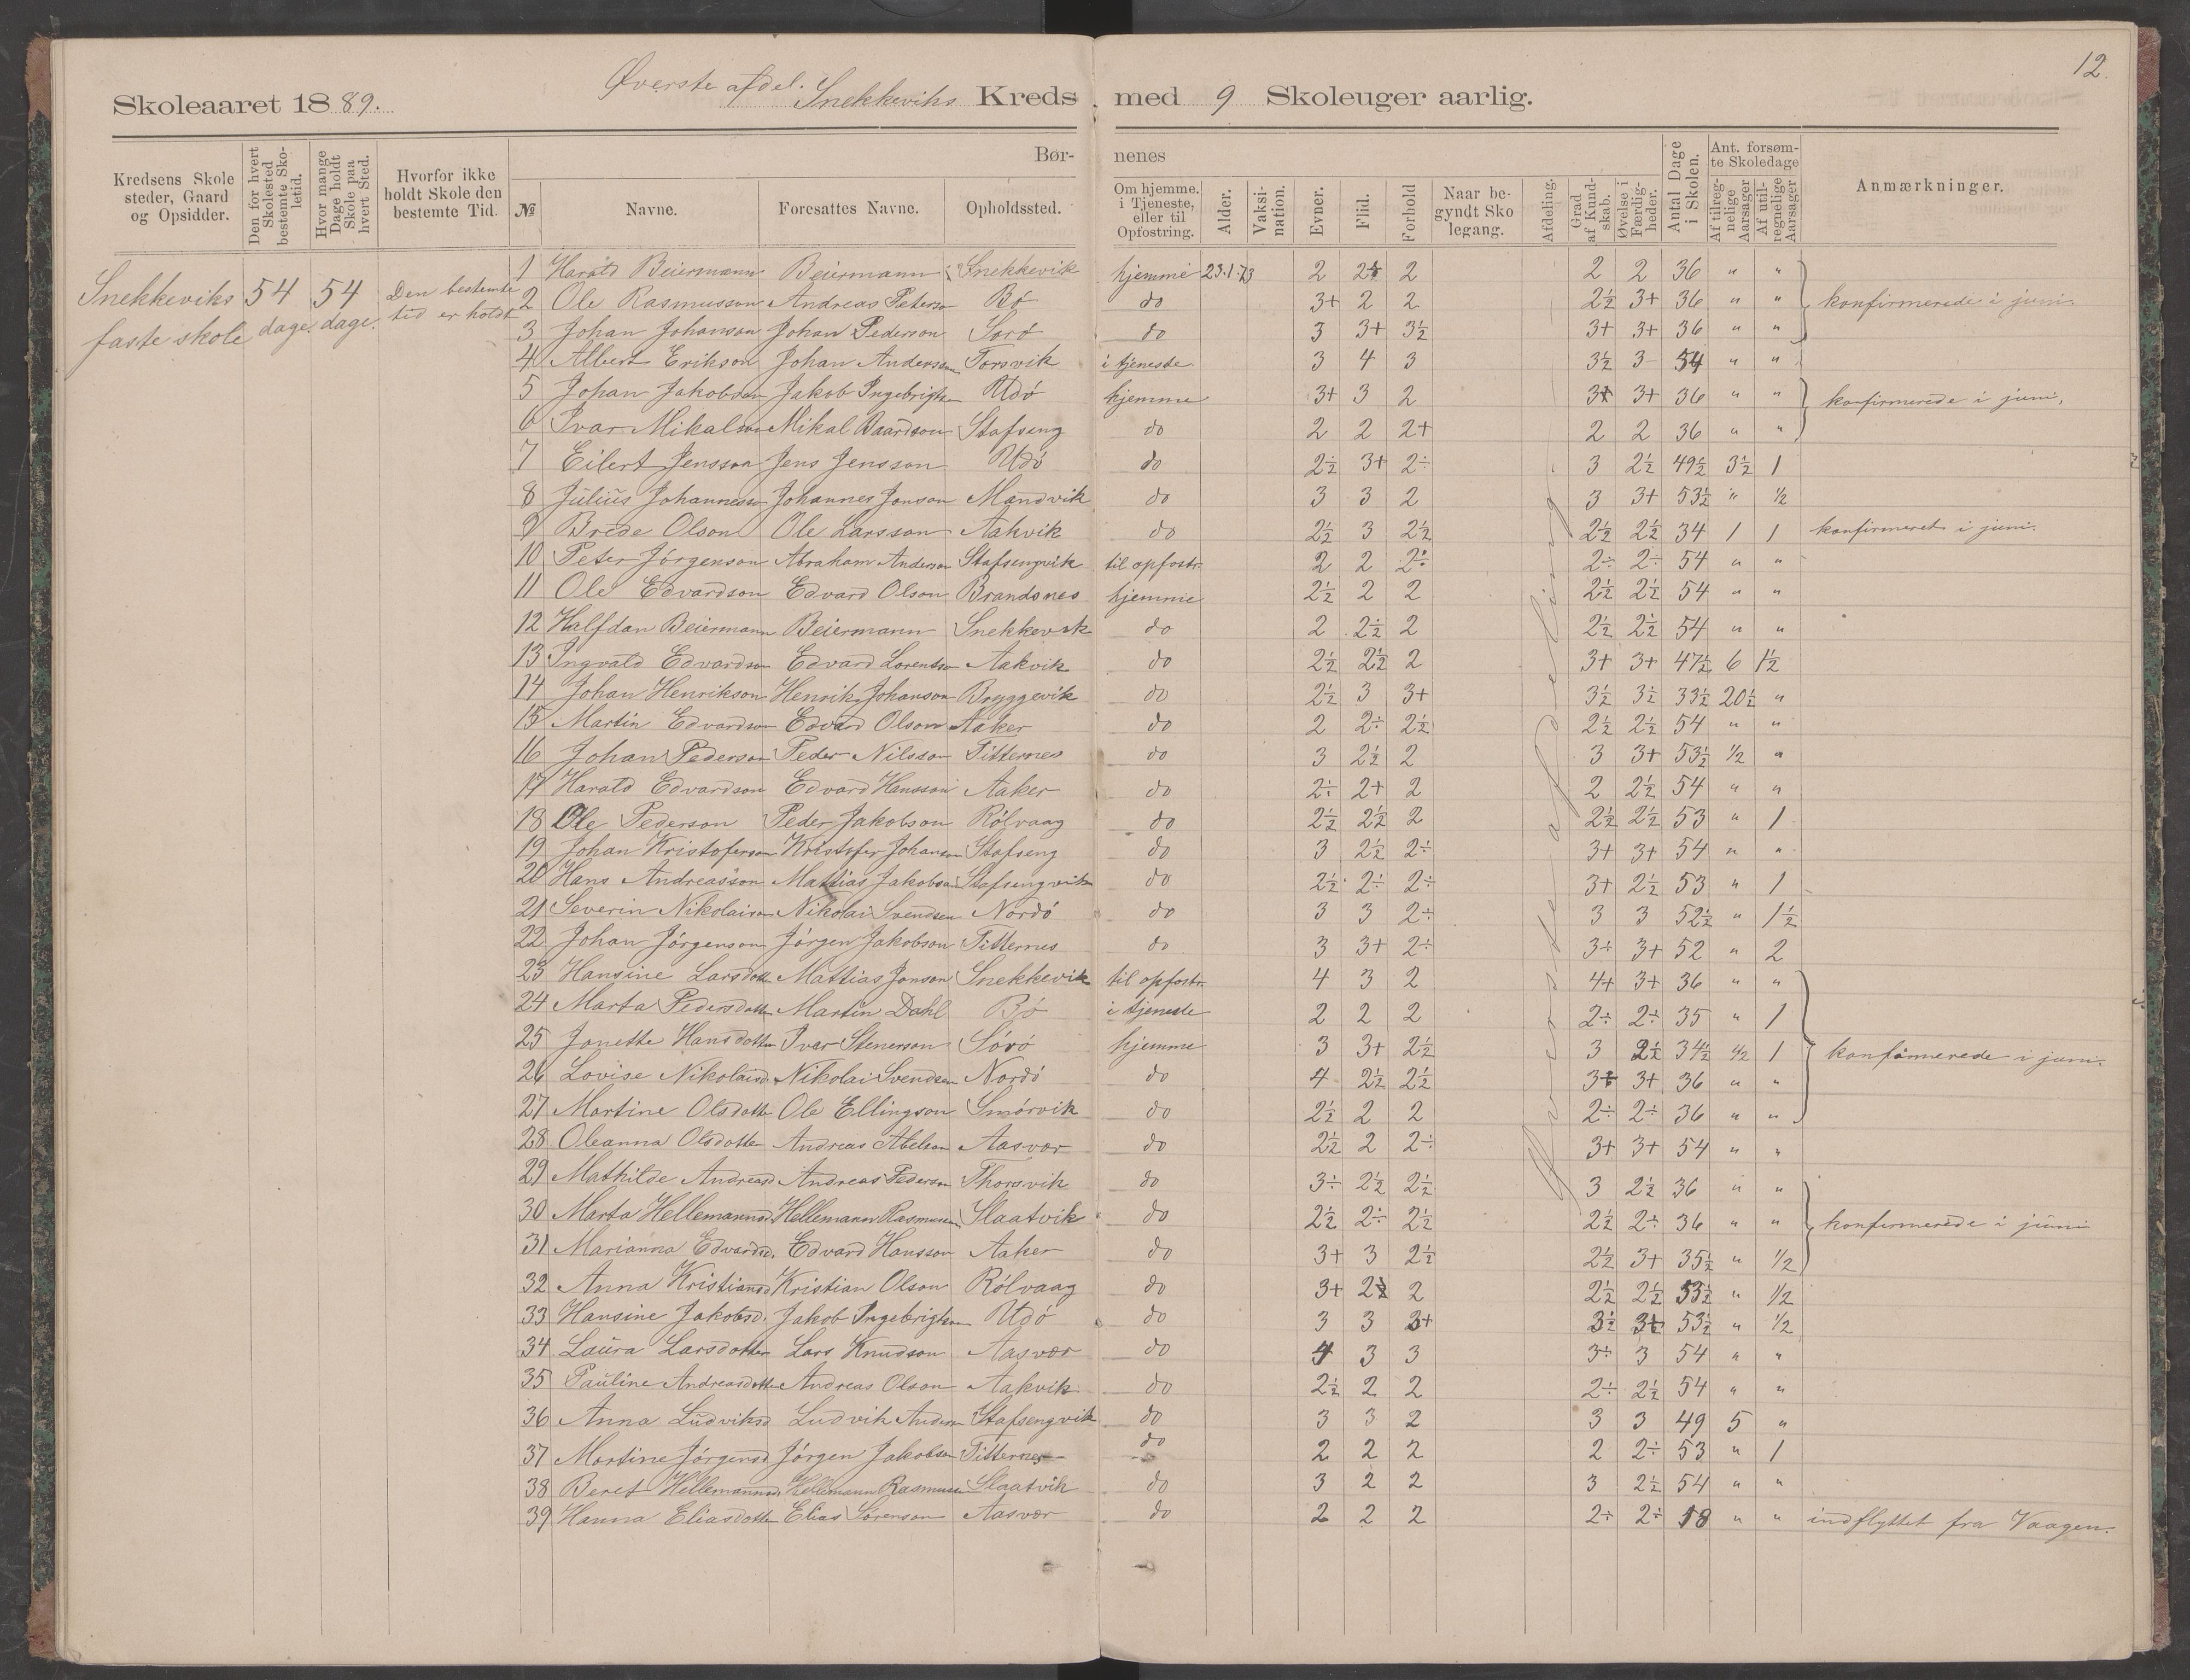 12.
Skoleaaret 1889. Øverste afdel. Snekkeviks Kreds med 9 Skoleuger aarlig.
Kredsens Skolesteder, Gaard og Opsidder.
Den for hvert Skolested bestemte Skoletid.
Hvor mange Dage holdt Skole paa hvert Sted.
Hvorfor ikke holdt Skole den bestemte Tid.
Børnenes
№ Navne. Foresattes Navne. Opholdssted.
Om hjemme, i Tjeneste, eller til Opfostring.
Alder. Vaksination. Evner. Flid. Forhold
Naar begyndt Skolegang.
Afdeling.
Grad af Kundskab.
Øvelse i Færdigheder.
Antal Dage i Skolen.
Ant. forsømte Skoledage
Af tilregnelige Aarsager
Af utilregnelige Aarsager
Anmærkninger.
Snekkeviks faste skole 54 dage. 54 dage. Den bestemte tid er holdt
Øverste afdeling
1 Harald Beiermann Beiermann Snekkevik hjemme 23.1.73 2 2½ 2 2 2 36 " "
2 Ole Rasmusson Andreas Peterso Bø do 3+ 2 2 2½ 3+ 36 " " konfirmerede i juni.
3 Johan Johanson Johan Pederson Sørø do 3 3+ 3½ 3+ 3+ 36 " "
4 Albert Erikson Johan Anderson Torsvik i tjeneste 3 4 3 3½ 3 54 " "
5 Johan Jakobson Jakob Ingebrigtson Udø hjemme 3+ 3 2 3+ 3+ 36 " " konfirmerede i juni,
6 Ivar Mikalson Mikal Baardson Stafseng do 2 2 2+ 2 2 36 " "
7 Eilert Jensson Jens Jensson Udø do 2½ 3+ 2÷ 3 2½ 49½ 3½ 1
8 Julius Johannesson Johannes Jonson Mandvik do 3 3 2 3 3+ 53½ " ½
9 Brede Olson Ole Larsson Aakvik do 2½ 3 2½ 2½ 2½ 34 1 1 konfirmeret i juni.
10 Peter Jørgenson Abraham Anderson Stafsengvik til opfostr. 2 2 2÷ 2÷ 2÷ 54 " "
11 Ole Edvardson Edvard Olson Brandsnes hjemme 2½ 2 2 2½ 2½ 54 " "
12 Halfdan Beiermann Beiermann Snekkevik do 2 2½ 2 2½ 2½ 54 " "
13 Ingvald Edvardson Edvard Lorentson Aakvik do 2½ 2½ 2 3+ 3+ 47½ 6 1½
14 Johan Henrikson Henrik Johanson Bryggevik do 2½ 3 3+ 3½ 3½ 33½ 20½ "
15 Martin Edvardson Edvard Olson Aaker do 2 2÷ 2½ 2½ 2½ 54 " "
16 Johan Pederson Peder Nilsson Titternes do 3 2½ 2 3 3+ 53½ ½ "
17 Harald Edvardson Edvard Hansson Aaker do 2÷ 2+ 2 2 2½ 54 " "
18 Ole Pederson Peder Jakobson Rølvaag do 2½ 2½ 2 2½ 2½ 53 " 1
19 Johan Kristoferson Kristofer Johanson Stafseng do 3 2½ 2÷ 3+ 3+ 54 " "
20 Hans Andreasson Mattias Jakobson Stafsengvik do 2½ 2÷ 2÷ 3+ 2½ 53 " 1
21 Severin Nikolaison Nikolai Svendsen Nordø do 3 3 2÷ 3 3 52½ " 1½
22 Johan Jørgenson Jørgen Jakobson Titternes do 3 3+ 2÷ 3÷ 3+ 52 " 2
23 Hansine Larsdotter Mattias Jonson Snekkevik til opfostr. 4 3 2 4+ 3+ 36 " "
24 Marta Pedersdotter Martin Dahl Bø i tjeneste 2 2 2 2÷ 2÷ 35 " 1
25 Jonette Hansdotter Ivar Stenerson Sørø hjemme 3 3+ 2½ 3 2½ 34½ ½ 1 konfirmerede i juni.
26 Lovise Nikolaisd. Nikolai Svendsen Nordø do 4 2½ 2½ 3+ 3+ 36 " "
27 Martine Olsdotter Ole Ellingson Smørvik do 2½ 2 2 2÷ 2÷ 36 " "
28 Oleanna Olsdotter Andreas Abelson Aasvær do 2½ 2 2÷ 3+ 3+ 54 " "
29 Mathilde Andreasd. Andreas Pederson Thorsvik do 3÷ 2½ 2½ 3 2½ 36 " "
30 Marta Hellemannsd. Hellemann Rasmusson Slaatvik do 2½ 2÷ 2½ 2½ 2÷ 36 " " konfirmerede i juni
31 Marianna Edvardsd. Edvard Hansson Aaker do 3+ 3 2½ 2½ 3+ 35½ " ½
32 Anna Kristiansd Kristian Olson Rølvaag do 3+ 2½ 2 2½ 2½ 53½ " ½
33 Hansine Jakobsd. Jakob Ingebrigtson Udø do 3 3 3+ 3½ 3+ 53½ " ½
34 Laura Larsdotter Lars Knudson Aasvær do 4 3 3 3÷ 3 54 " "
35 Pauline Andreasdotter Andreas Olson Aakvik do 2½ 2 2 2÷ 2½ 54 " "
36 Anna Ludviksd Ludvik Anderson Stafsengvik do 3 3 2 3 3 49 5 "
37 Martine Jørgensd Jørgen Jakobson Titternes do 2 2 2 2 2÷ 53 " 1
38 Beret Hellemannsd. Hellemann Rasmusson Slaatvik do 3 2 2 3 2½ 54 " "
39 Hanna Eliasdotter Elias Sørenson Aasvær do 2 2 2 2÷ 2÷ 18 " " indflyttet fra Vaagen.